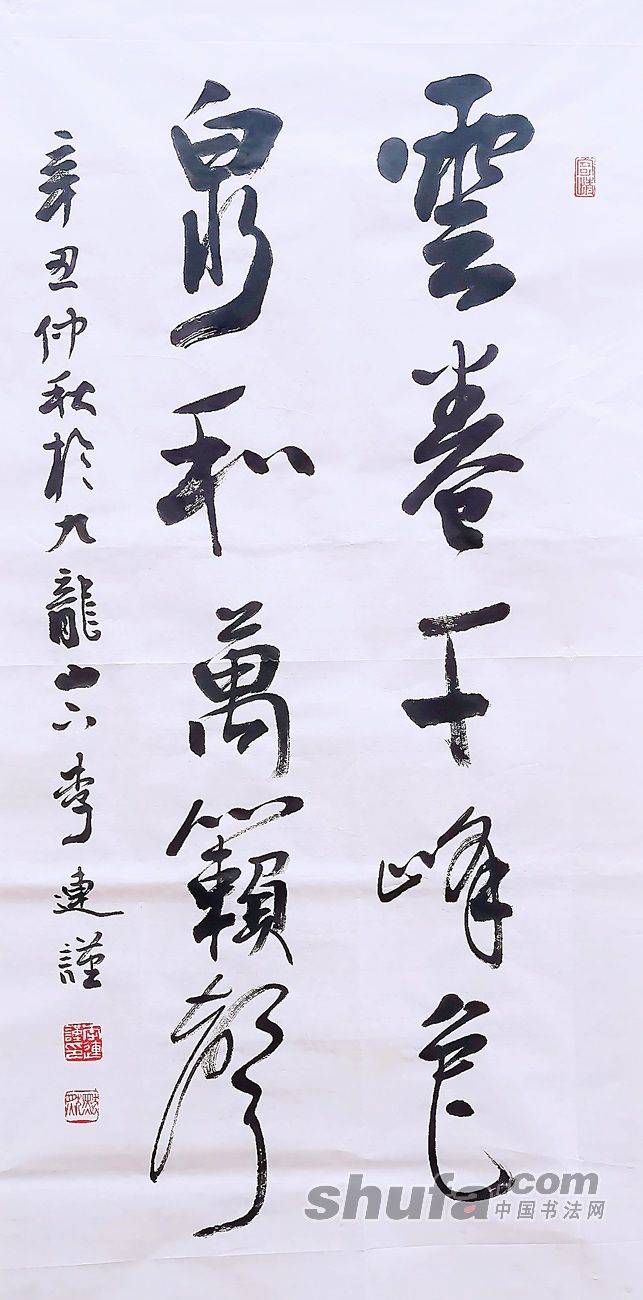 雲卷千峰色
泉和萬籟聲
辛丑仲秋於九龍山下李連謹
shufa.com
中国书法网